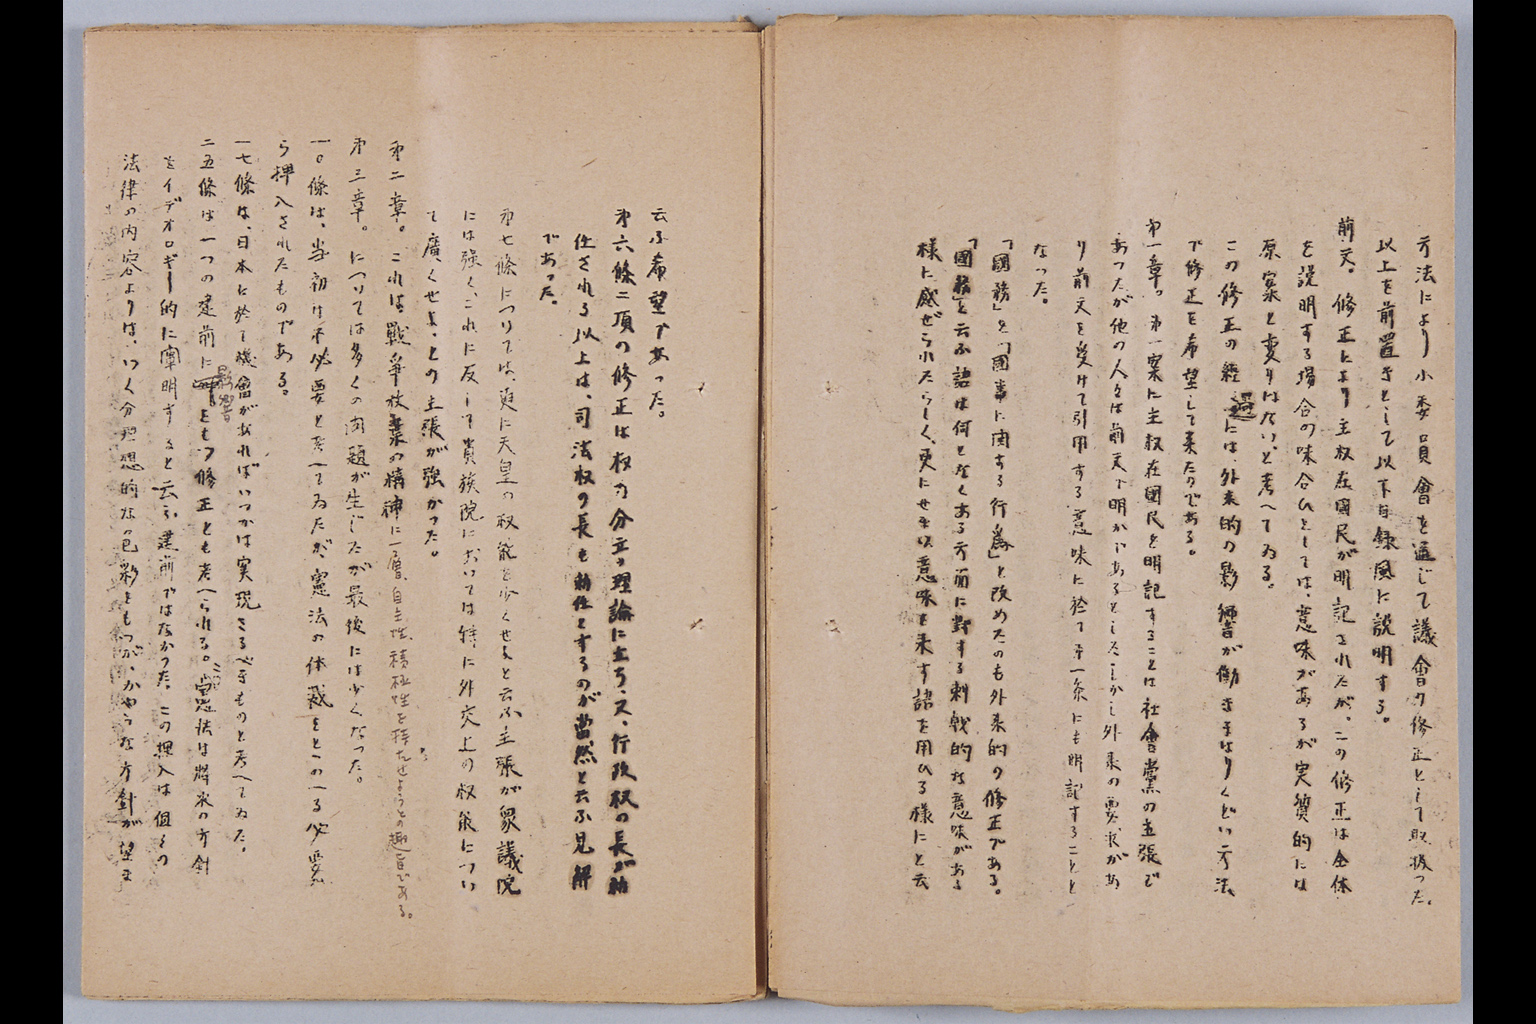 方法により小委員會を通じて議會の修正として取扱つた。
以上を前置きとして以下目録風に説明する。
前文。修正により主权在國民が明記されたが。この修正は全体
を説明する場合の味合ひとしては、意味があるが実質的には
原案と変りはないと考へてゐる。
この修正の経過には、外来的の影響が働きまはりくどい方法
で修正を希望して来たのである。
第一章。第一案に主权在國民を明記することは社會黨の主張で
あつたが他の人々は前文で明かであるとしたしかし外来の要求があ
り前文を受けて引用する意味に於て第一条にも明記することと
なつた。
「國務」を「國事に関する行為」と改めたのも外来的の修正である。
「國務」と云ふ語は何となくある方面に對する刺戟的な意味がある
様に感ぜられたらしく、更にせまい意味を来す語を用ひる様にと云
云ふ希望であつた。
第六條二項の修正は权力分立の理論に立ち、又、行政权の長が勅
任される以上は、司法权の長も勅任とするのが當然と云ふ見解
であつた。
第七條については、更に天皇の权能を少くせよと云ふ主張が衆議院
には強く、これに反して貴族院においては特に外交上の权能につい
て廣くせよ、との主張が強かつた。
第二章。これは戰爭放棄の精神に一層、自主性、積極性を持たせようとの趣旨である。
第三章。については多くの問題が生じたが最後には少くなつた。
一〇條は、当初は不必要と考へてゐたが、憲法の体裁をととのへる必要か
ら挿入されたものである。
一七條は、日本に於て機會があればいつかは実現さるべきものと考へてゐた。
二五條は一つの建前に影響をもつ修正とも考へられる。憲法は將来の方針
をイデオロギー的に闡明すると云ふ建前ではなかつた。この挿入は個々の
法律の内容よりは、いく分理想的な色彩をもつが、かやうな方針が望ま